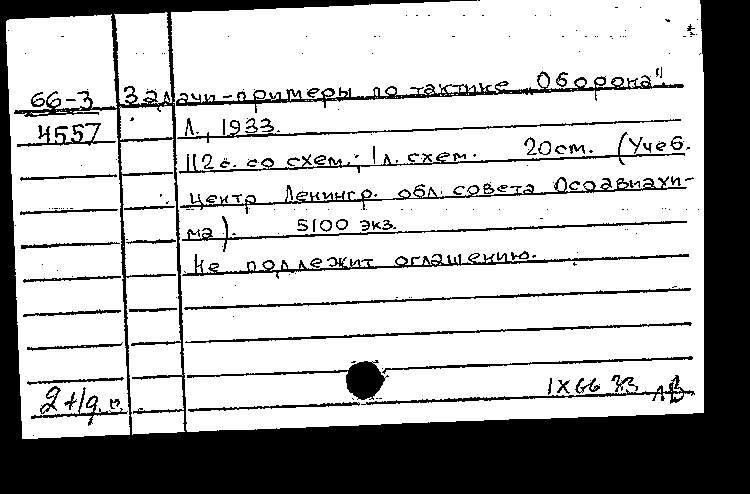 66-3 Задачи-примеры по тактике „Оборона".
4557 Л., 1933.
112 с. со схем.; 1 л. схем. 20см. (Учеб.
центр Ленингр. обл. совета Осоавиахи-
ма). 5100 экз.
Не подлежит оглашению.
IX 66